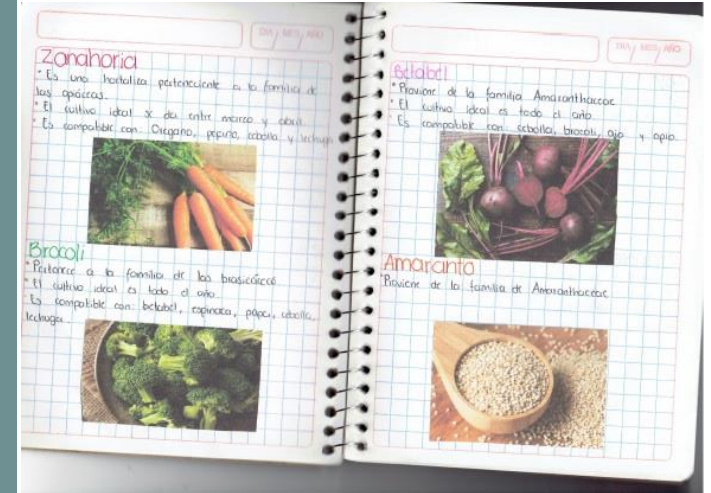 DIA / MES / AÑO
Zanahoria
• Es una hortaliza perteneciente a la familia de
las apiáceas.
• El cultivo ideal se da entre marzo y abril.
• Es compatible con: Orégano, pepino, cebolla y lechuga
Brocoli
• Pertenece a la familia de las brasicáceas
• El cultivo ideal es todo el año
• Es compatible con: betabel, espinaca, papa, cebolla,
lechuga.
DIA / MES / AÑO
Betabel
• Proviene de la familia Amaranthaceae
• El cultivo ideal es todo el año.
• Es compatible con: cebolla, brocoli, ajo y apio.
Amaranto
• Proviene de la familia de Amaranthaceae